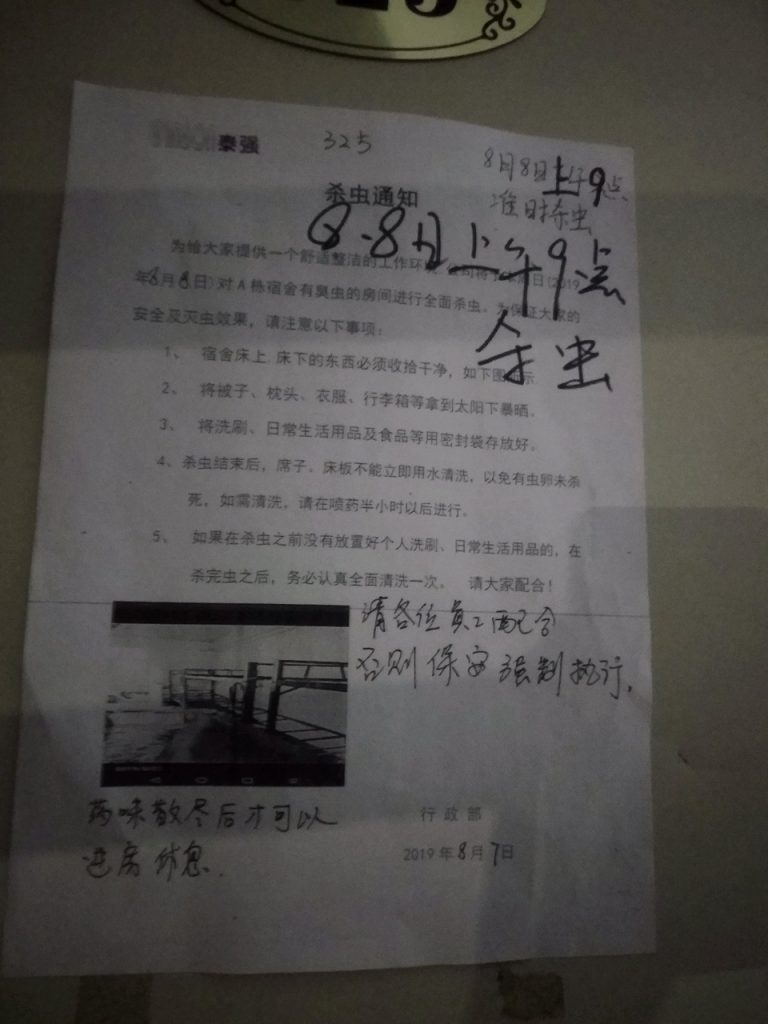 25
泰强
325
8月8日上午9点
准时杀虫
杀虫通知
8-8日上午9点
杀虫
为给大家提供一个舒适整洁的工作环境 公司将于 日(2019
年8月8日)对A栋宿舍有臭虫的房间进行全面杀虫。为保证大家的
安全及灭虫效果,请注意以下事项:
1、 宿舍床上 床下的东西必须收拾干净,如下图所示
2、 将被子、枕头、衣服、行李箱等拿到太阳下暴晒。
3、 将洗刷、日常生活用品及食品等用密封袋存放好。
4、杀虫结束后,席子、床板不能立即用水清洗,以免有虫卵未杀
死,如需清洗,请在喷药半小时以后进行。
5、 如果在杀虫之前没有放置好个人洗刷、日常生活用品的,在
杀完虫之后,务必认真全面清洗一次。 请大家配合!
请各位员工配合
否则保安强制执行.
药味散尽后才可以
进房休息.
行政部
2019年8月7日